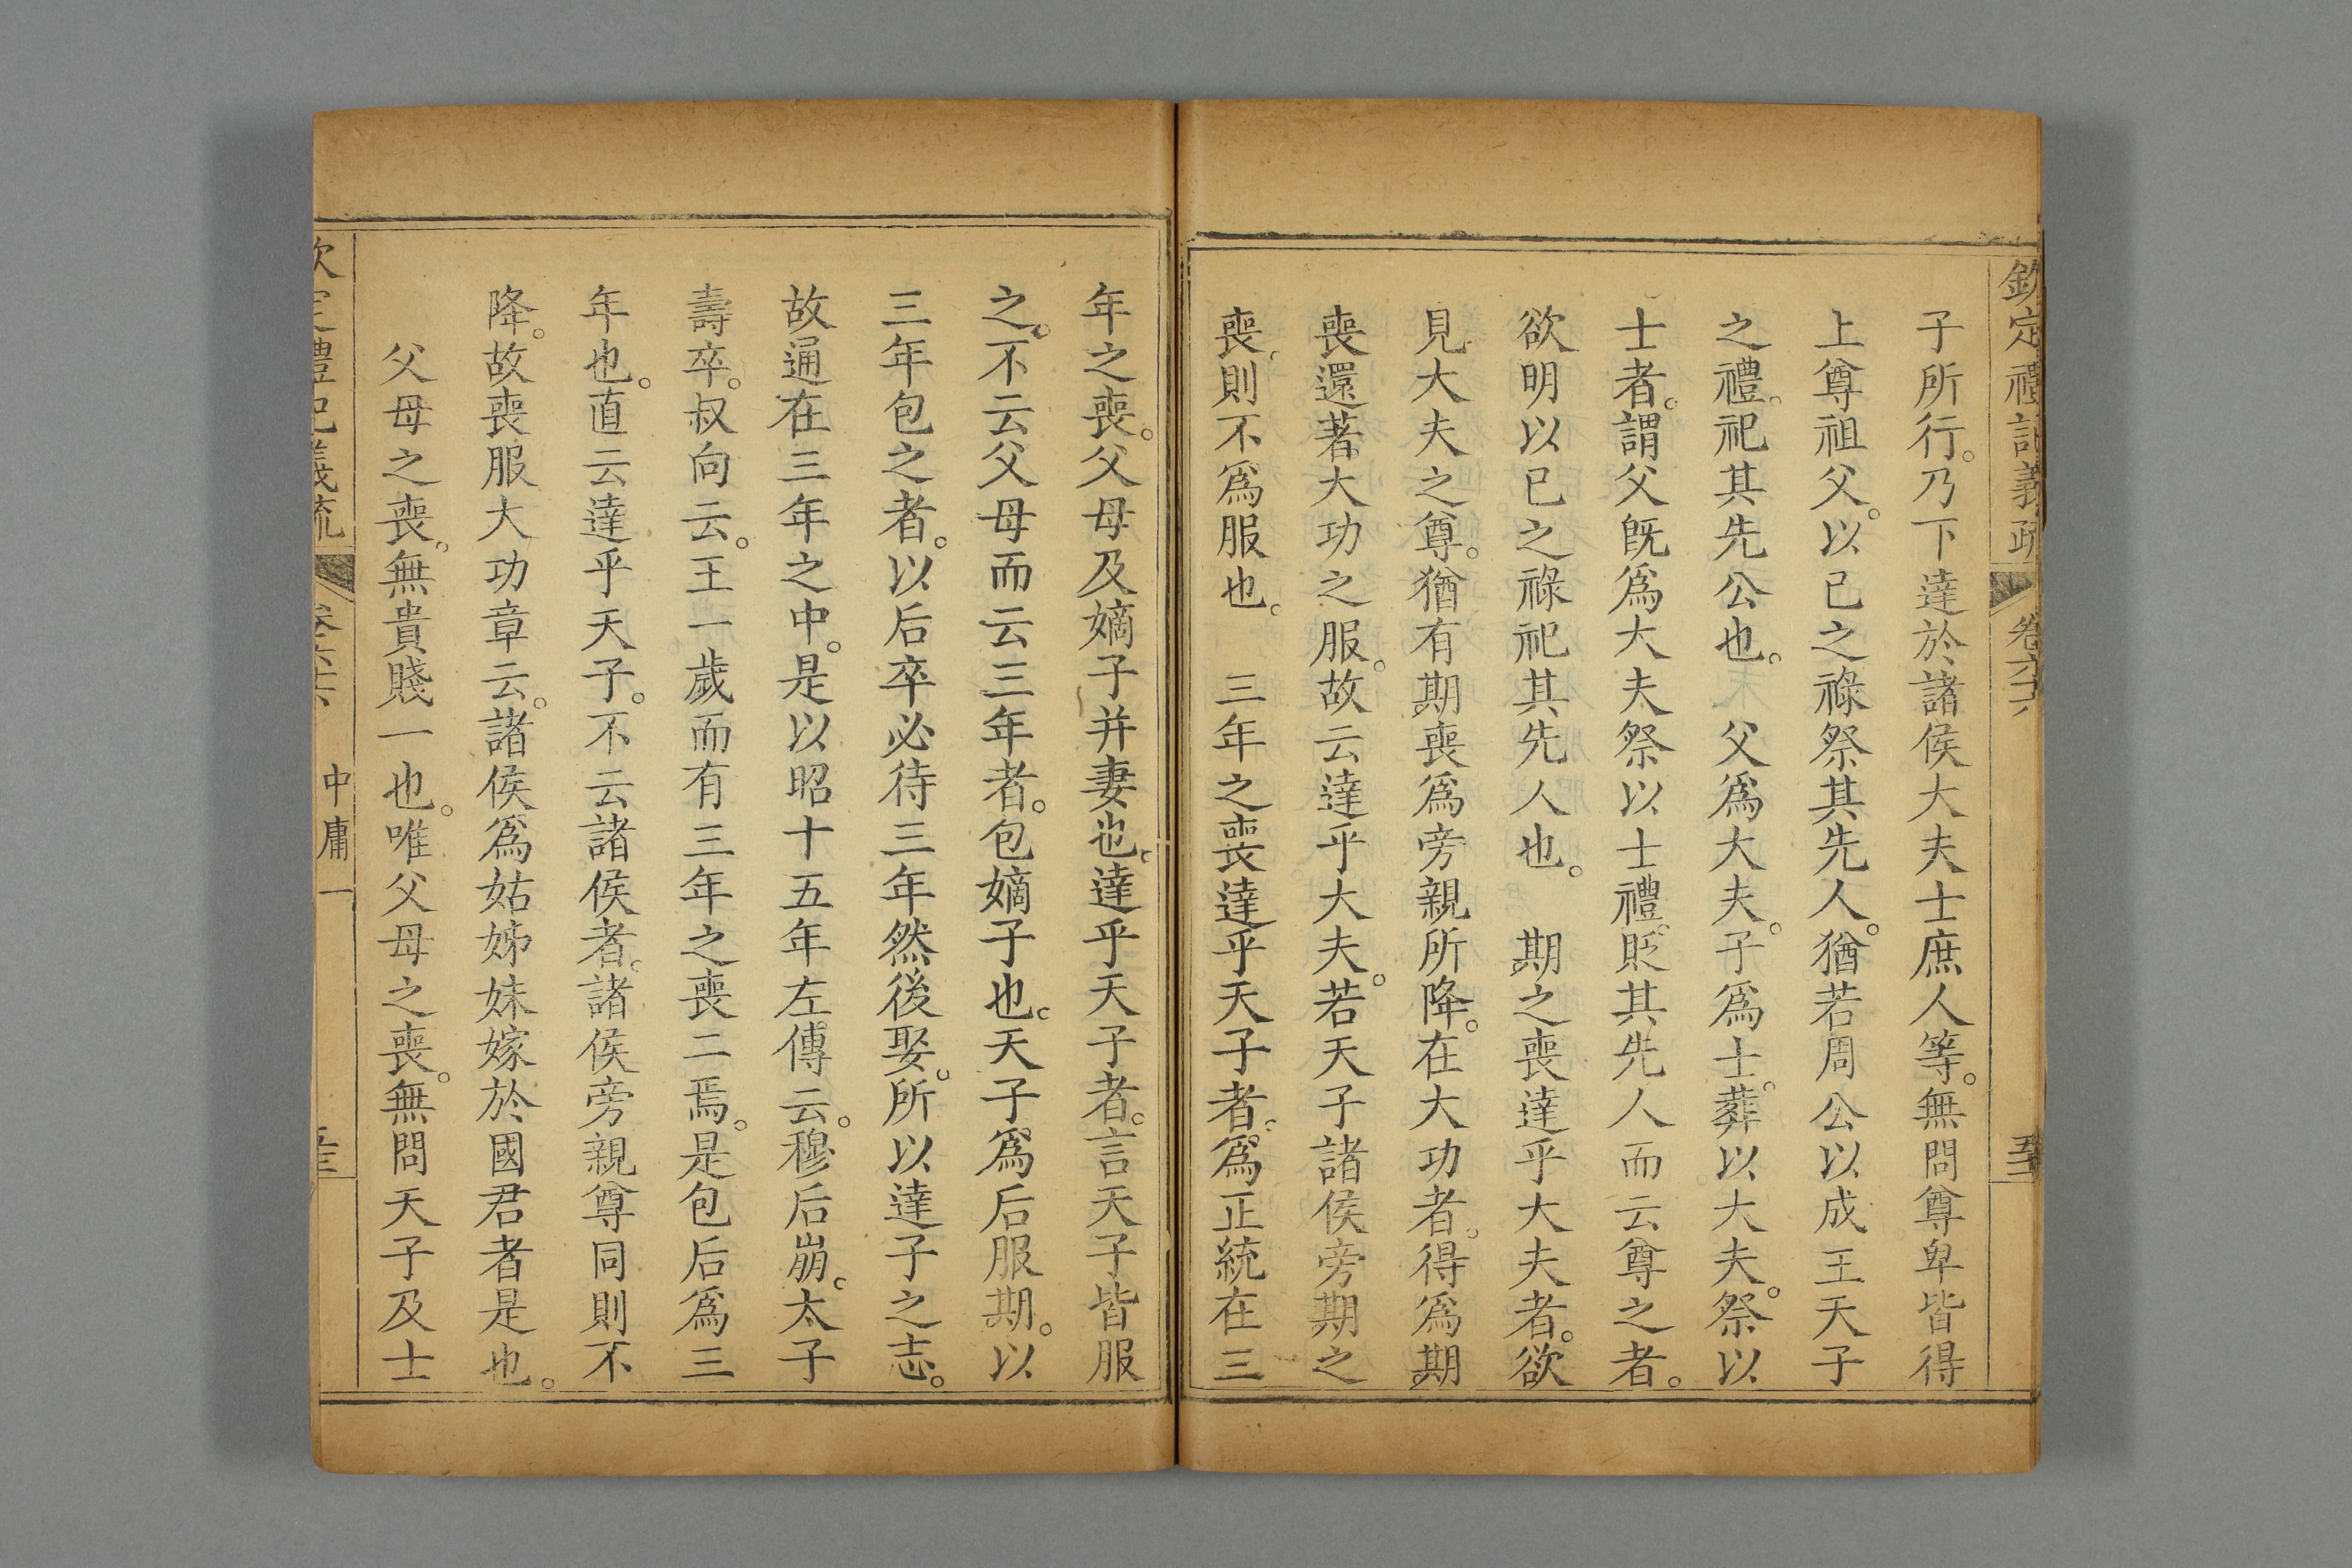 欽定禮記義疏 卷六十六
子所行。乃下達於諸侯大夫士庶人等。無問尊卑皆得
上尊祖父。以已之祿祭其先人。猶若周公以成王天子
之禮。祀其先公也。 父爲大夫。子爲士。葬以大夫。祭以
士者。謂父旣爲大夫祭以士禮。貶其先人而云尊之者。
欲明以已之祿祀其先人也。 期之喪達乎大夫者。欲
見大夫之尊。猶有期喪爲旁親所降。在大功者。得爲期
喪還著大功之服。故云達乎大夫。若天子諸侯旁期之
喪。則不爲服也。 三年之喪達乎天子者。爲正統在三
年之喪。父母及嫡子并妻也。達乎天子者。言天子皆服
之。不云父母而云三年者。包嫡子也。天子爲后服期。以
三年包之者。以后卒必待三年然後娶。所以達子之志。
故通在三年之中。是以昭十五年左傳云。穆后崩。太子
壽卒。叔向云。王一歲而有三年之喪二焉。是包后爲三
年也。直云達乎天子。不云諸侯者。諸侯旁親尊同則不
降。故喪服大功章云。諸侯爲姑姊妹嫁於國君者是也。
父母之喪。無貴賤一也。唯父母之喪。無問天子及士
欽定禮記義疏 卷六十六 中庸一